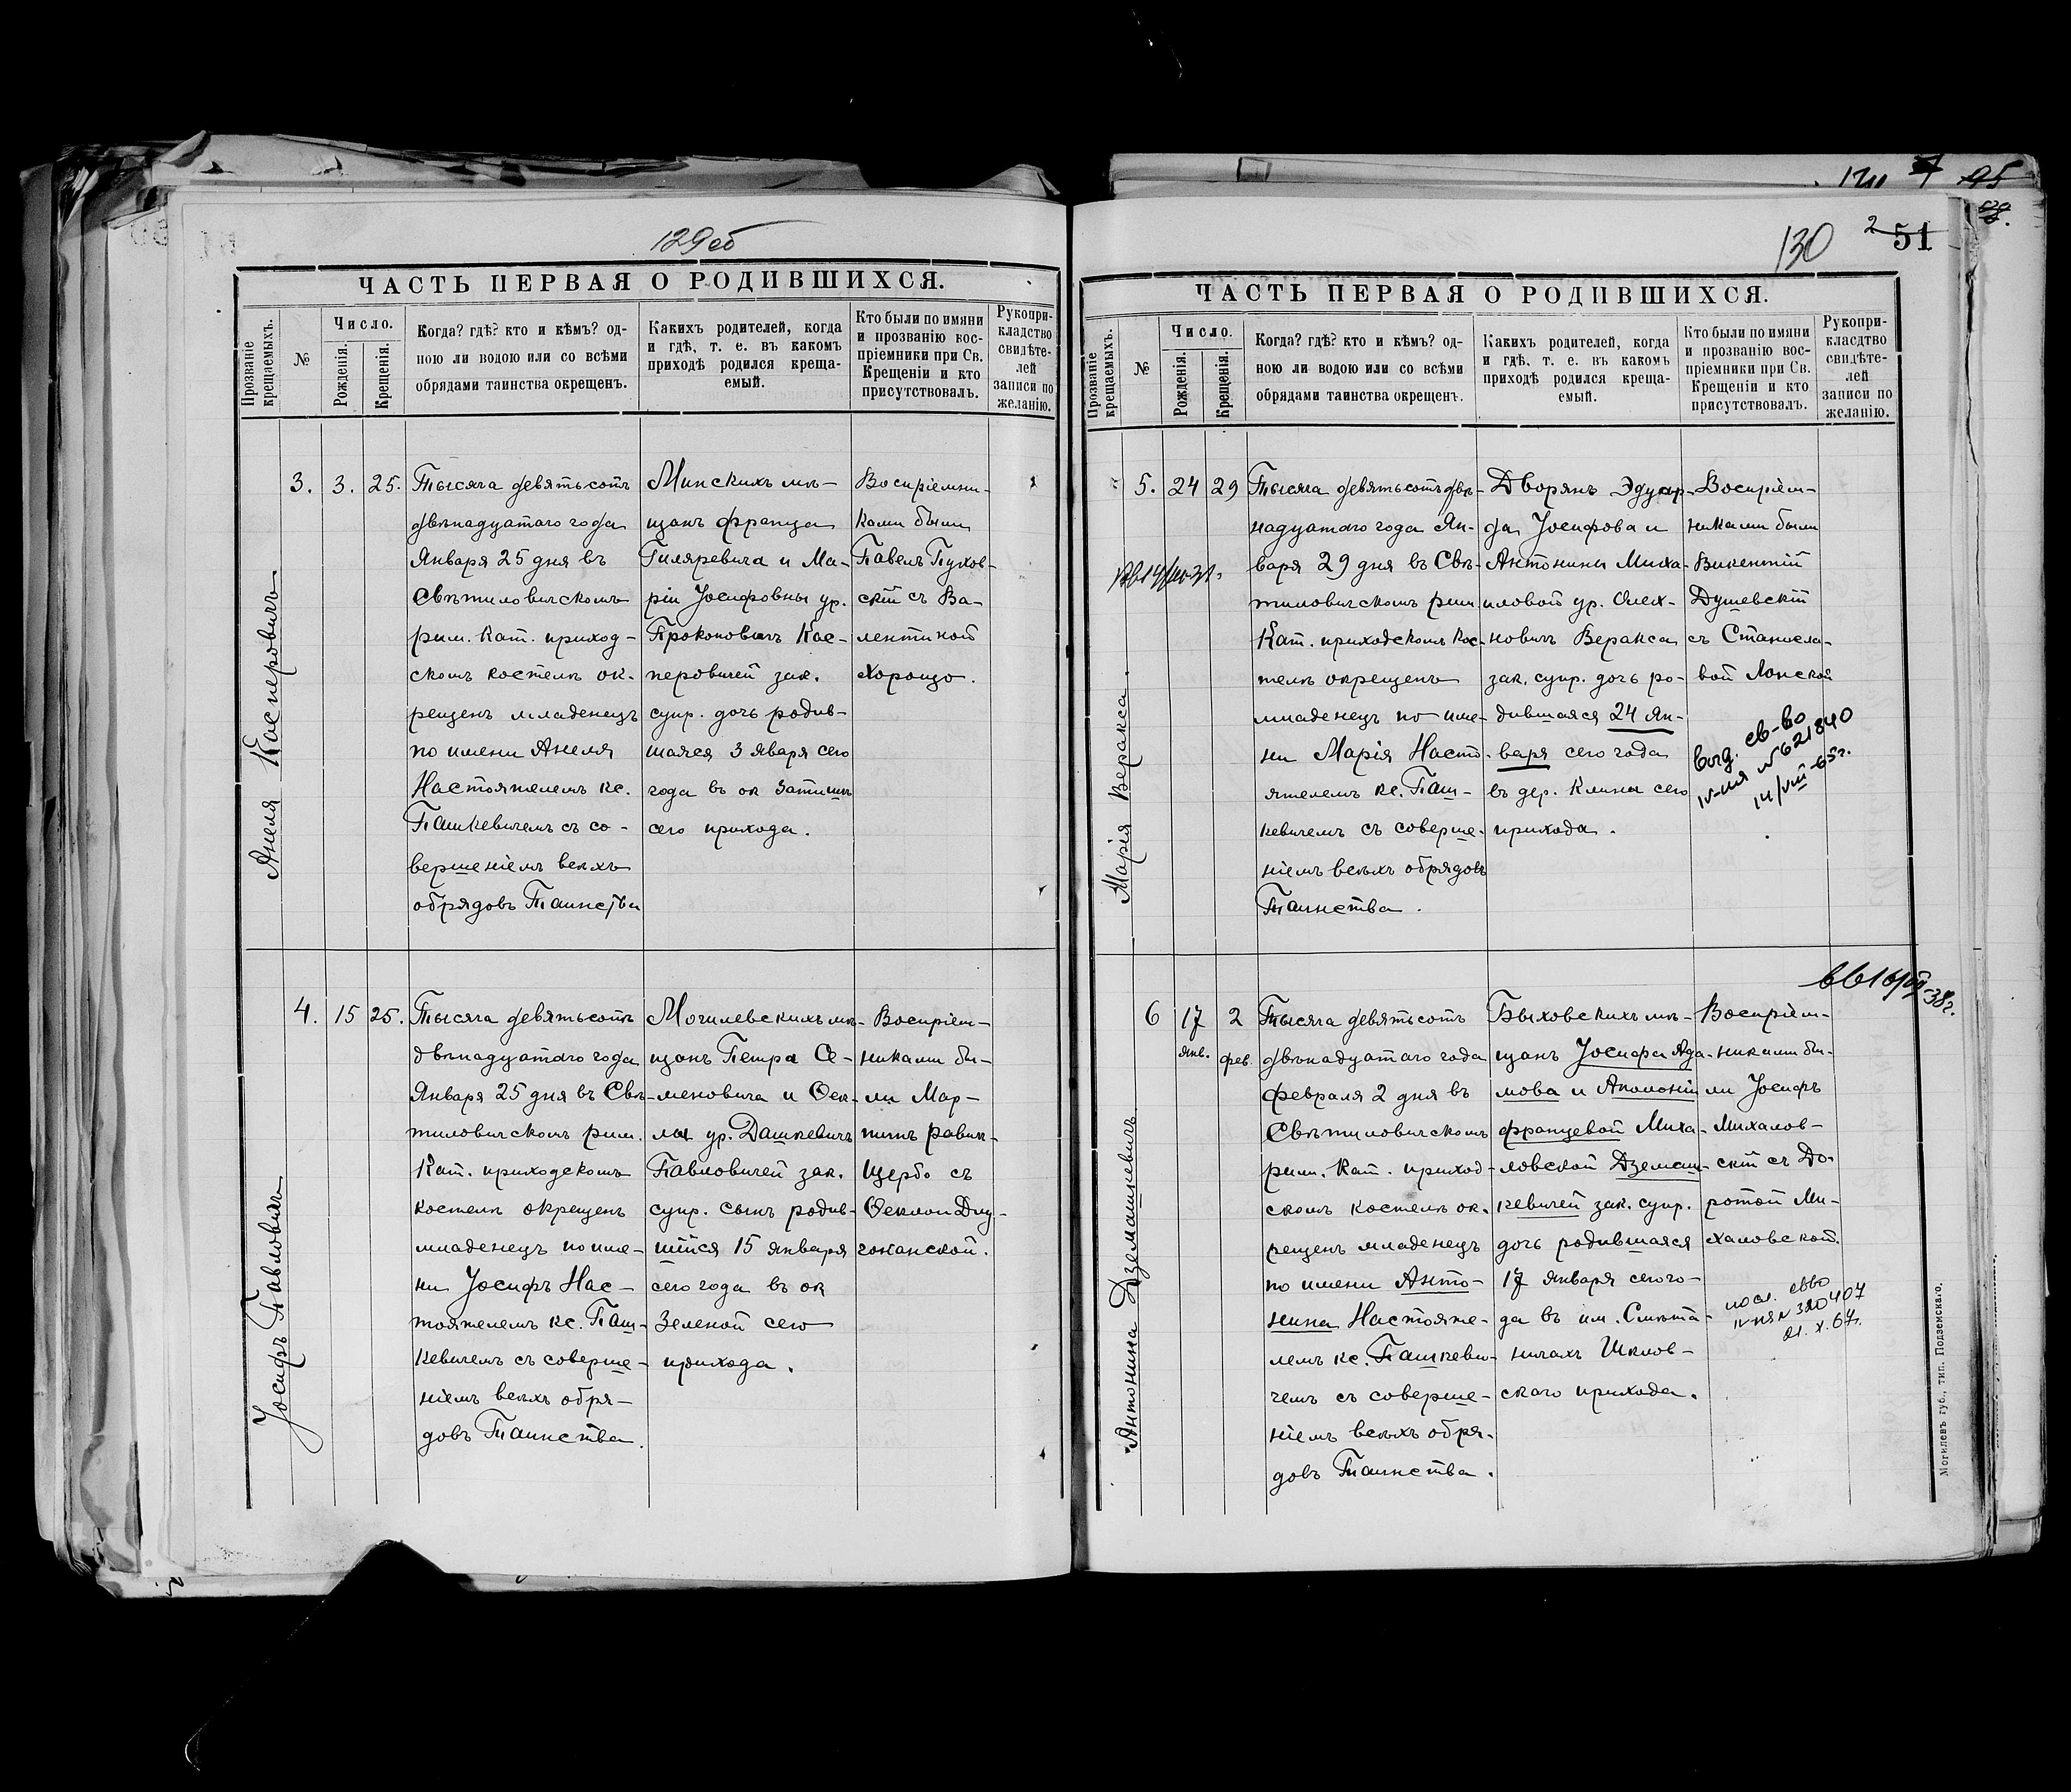 129об
ЧАСТЬ ПЕРВАЯ О РОДИВШИХСЯ.
Прозваніе крещаемыхъ.
№
Число.
Рожденія.
Крещенія.
Когда? гдѣ? кто и кѣмъ? од-
ною ли водою или со всѣми
обрядами таинства окрещенъ.
Какихъ родителей, когда
и гдѣ, т. е. въ какомъ
приходѣ родился креща-
емый.
Кто были по имяни
и прозванію вос-
пріемники при Св.
Крещеніи и кто
присутствовалъ.
Рукопри-
кладство
свидѣте-
лей
записи по
желанію.
Анеля Касперовичъ
3.
3.
25.
Тысяча девятьсотъ
двѣнадцатаго года
Января 25 дня въ
Свѣтиловичскомъ
рим. Кат. приход-
скомъ костелѣ ок-
рещенъ младенецъ
по имени Анеля
Настоятелемъ кс.
Пашкевичемъ съ со-
вершеніемъ всѣхъ
обрядовъ Таинства
Минскихъ мѣ-
щанъ Франца
Гиляревича и Ма-
ріи Іосифовны ур.
Прокоповичъ Кас-
перовичей зак.
супр. дочь родив-
шаяся 3 Января сего
года въ ок Затишьѣ
сего прихода.
Воспріемни-
ками были
Павелъ Пухов-
скій съ Ва-
лентиной
Хороцо.
Іосифъ Павловичъ
4.
15
25.
Тысяча девятьсотъ
двѣнадцатаго года
Января 25 дня въ Свѣ-
тиловичскомъ рим.
Кат. приходскомъ
костелѣ окрещенъ
младенецъ по име-
ни Іосифъ Нас-
тоятелемъ кс. Паш-
кевичемъ съ соверше-
ніемъ всѣхъ обря-
довъ Таинства.
Могилевскихъ мѣ-
щанъ Петра Се-
меновича и Ѳек-
лы ур. Дашкевичъ
Павловичей зак.
супр. сынъ родив-
шійся 15 января
сего года въ ок
Зеленой сего
прихода.
Воспріем-
никами бы-
ли Мар-
тинъ Равик-
Щербо съ
Ѳеклой Длу-
гоканской.
130
2
51
ЧАСТЬ ПЕРВАЯ О РОДИВШИХСЯ.
Прозваніе крещаемыхъ.
№
Число.
Рожденія.
Крещенія.
Когда? гдѣ? кто и кѣмъ? од-
ною ли водою или со всѣми
обрядами таинства окрещенъ.
Какихъ родителей, когда
и гдѣ, т. е. въ какомъ
приходѣ родился креща-
емый.
Кто были по имяни
и прозванію вос-
пріемники при Св.
Крещеніи и кто
присутствовалъ.
Рукопри-
класдтво
свидѣте-
лей
записи по
желанію.
Марія Веракса.
5.
24
29
Тысяча девятьсотъ двѣ-
надцатаго года Ян-
варя 29 дня въ Свѣ-
тиловичскомъ рим
Кат. приходскомъ кос-
телѣ окрещенъ
младенецъ по име-
ни Марія Насто-
ятелемъ кс. Паш-
кевичемъ съ соверше-
ніемъ всѣхъ обрядовъ
Таинства.
Дворянъ Эдуар-
да Іосифова и
Антонины Миха-
иловой ур. Олех-
новичъ Веракса
зак. супр. дочь ро-
дившаяся 24 ян-
варя сего года
въ дер. Клины сего
прихода.
Воспріем-
никами были
Викентій
Душевскій
съ Станисла-
вой Лонской
выд. св-во
IV-ИЯ №621840
14/VIII-65г.
выб /VII-38г.
Антонина Дземашкевичъ
6
17
янв.
2
фев.
Тысяча девятьсотъ
двѣнадцатаго года
февраля 2 дня въ
Свѣтиловичскомъ
рим. Кат. приход-
скомъ костелѣ ок-
рещенъ младенецъ
по имени Анто-
нина Настояте-
лемъ кс. Пашкеви-
чемъ съ соверше-
ніемъ всѣхъ обря-
довъ Таинства.
Быховскихъ мѣ-
щанъ Іосифа Ада-
мова и Аполоніи
Францевой Миха-
ловской Дземаш-
кевичей зак. супр.
дочь родившаяся
17 января сего го-
да въ им. Смѣта-
ничахъ Шклов-
скаго прихода.
Воспріем-
никами бы-
ли Іосифъ
Михалов-
скій съ До-
ротой Ми-
халовской.
посл. свво
IV-ИЯ №320407
21.X.67г.
Могилевъ губ., тип. Подземскаго.